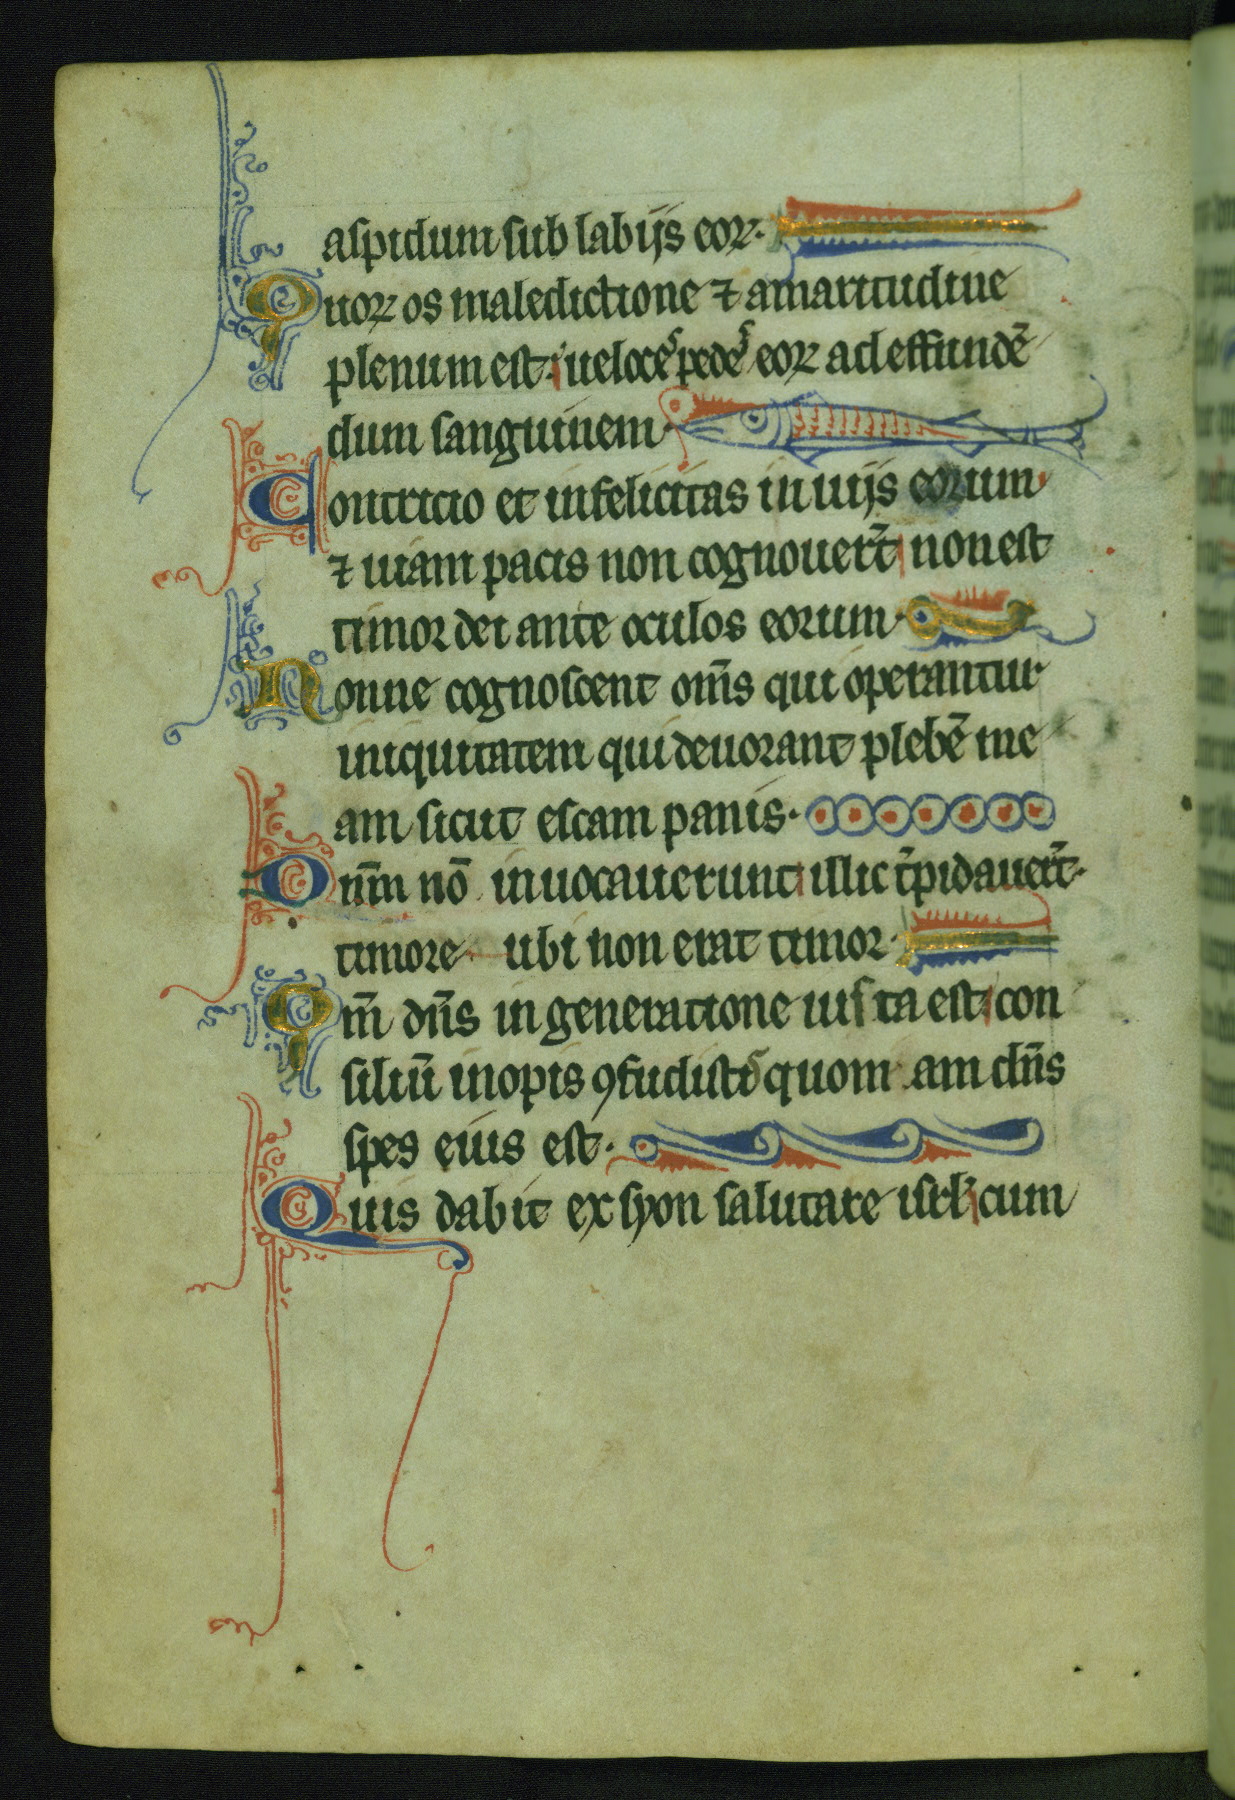 aspidum sub labijs eoꝝ·
Quoꝝ os maledictione ⁊ amaritudine
plenum est: ueloces pedes eoꝝ ad effundē
dum sanguinem·
Contricio et infelicitas in uijs eorum·
⁊ uiam pacis non cognouer̄t non est
timor dei ante oculos eorum·
Nonne cognoscent om̄s qui operantur
iniquitatem qui deuorant plebē me
am sicut escam panis·
Dn̄m nō inuocauerunt illic t̄pidauer̄t·
timore ubi non erat timor·
Qm̄ dn̄s in generatione iusta est con
siliū inopis ꝯfudisti quoniam dn̄s
spes eius est·
Quis dabit ex syon salutare isrł cum